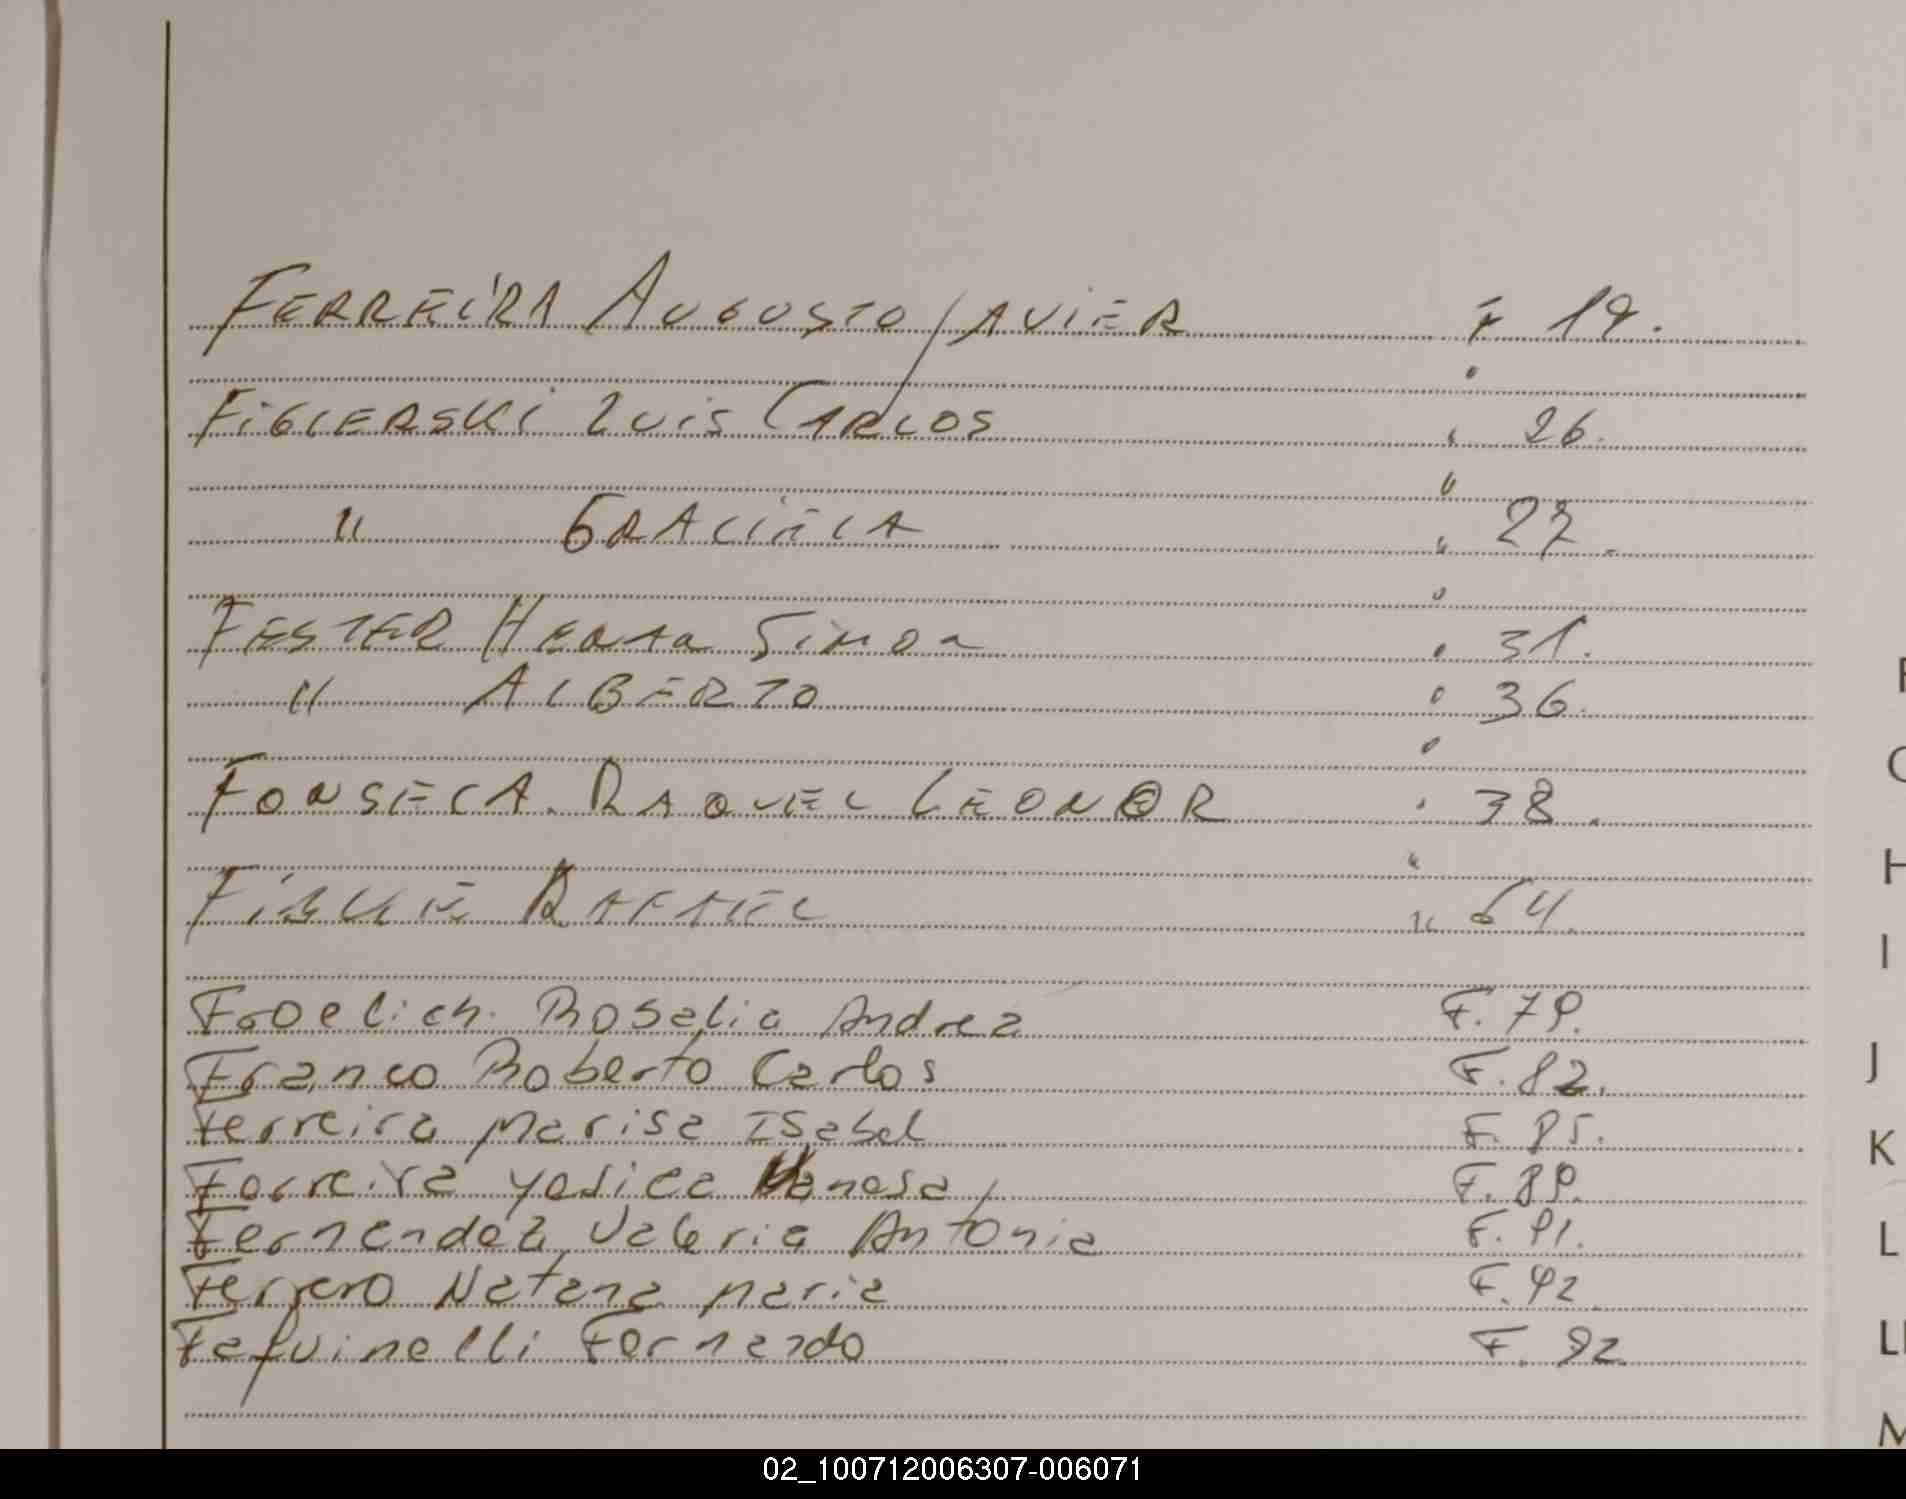 FERREIRA AUGUSTO JAVIER F 19.
"
FIGIERSKI LUIS CARLOS " 26.
"
" GRACIELA " 27.
"
FESTER HERTA SIMON " 31.
" ALBERTO " 36.
"
FONSECA. RAQUEL LEONOR " 38.
"
RAFAEL " 64.
Froelich. Rosalia Andrea F. 79.
Franco Roberto Carlos F. 82.
Ferreira Marisa Isabel F. 85.
Ferreira Yesica Vanesa F. 89.
Fernandez Valeria Antonia F. 91.
Ferrero Natana Maria F. 92
Fernando F. 92
F
G
H
I
J
K
L
LL
M
02_100712006307-006071